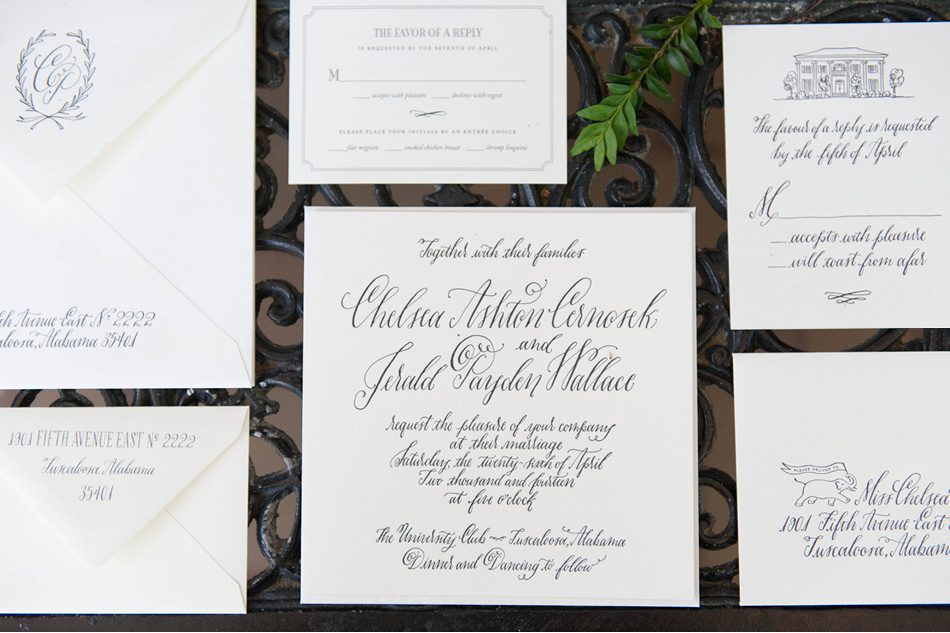 CP
fth Avenue East Nº 2222
aloosa, Alabama 35401
1901 FIFTH AVENUE EAST Nº 2222
Tuscaloosa, Alabama
35401
THE FAVOR OF A REPLY
IS REQUESTED BY THE SEVENTH OF APRIL
M
accepts with pleasure declines with regret
PLEASE PLACE YOUR INITIALS BY AN ENTRÉE CHOICE
filet mignon smoked chicken breast shrimp linguine
Together with their families
Chelsea Ashton Cernosek
and
Jerald Payden Wallace
request the pleasure of your company
at their marriage
Saturday, the twenty-sixth of April
Two thousand and fourteen
at five o'clock
The University Club Tuscaloosa, Alabama
Dinner and Dancing to follow
The favour of a reply is requested
by the fifth of April
M
accepts with pleasure
will toast from afar
PLEASE DELIVER TO
Miss Chelsea
1901 Fifth Avenue East
Tuscaloosa, Alabam